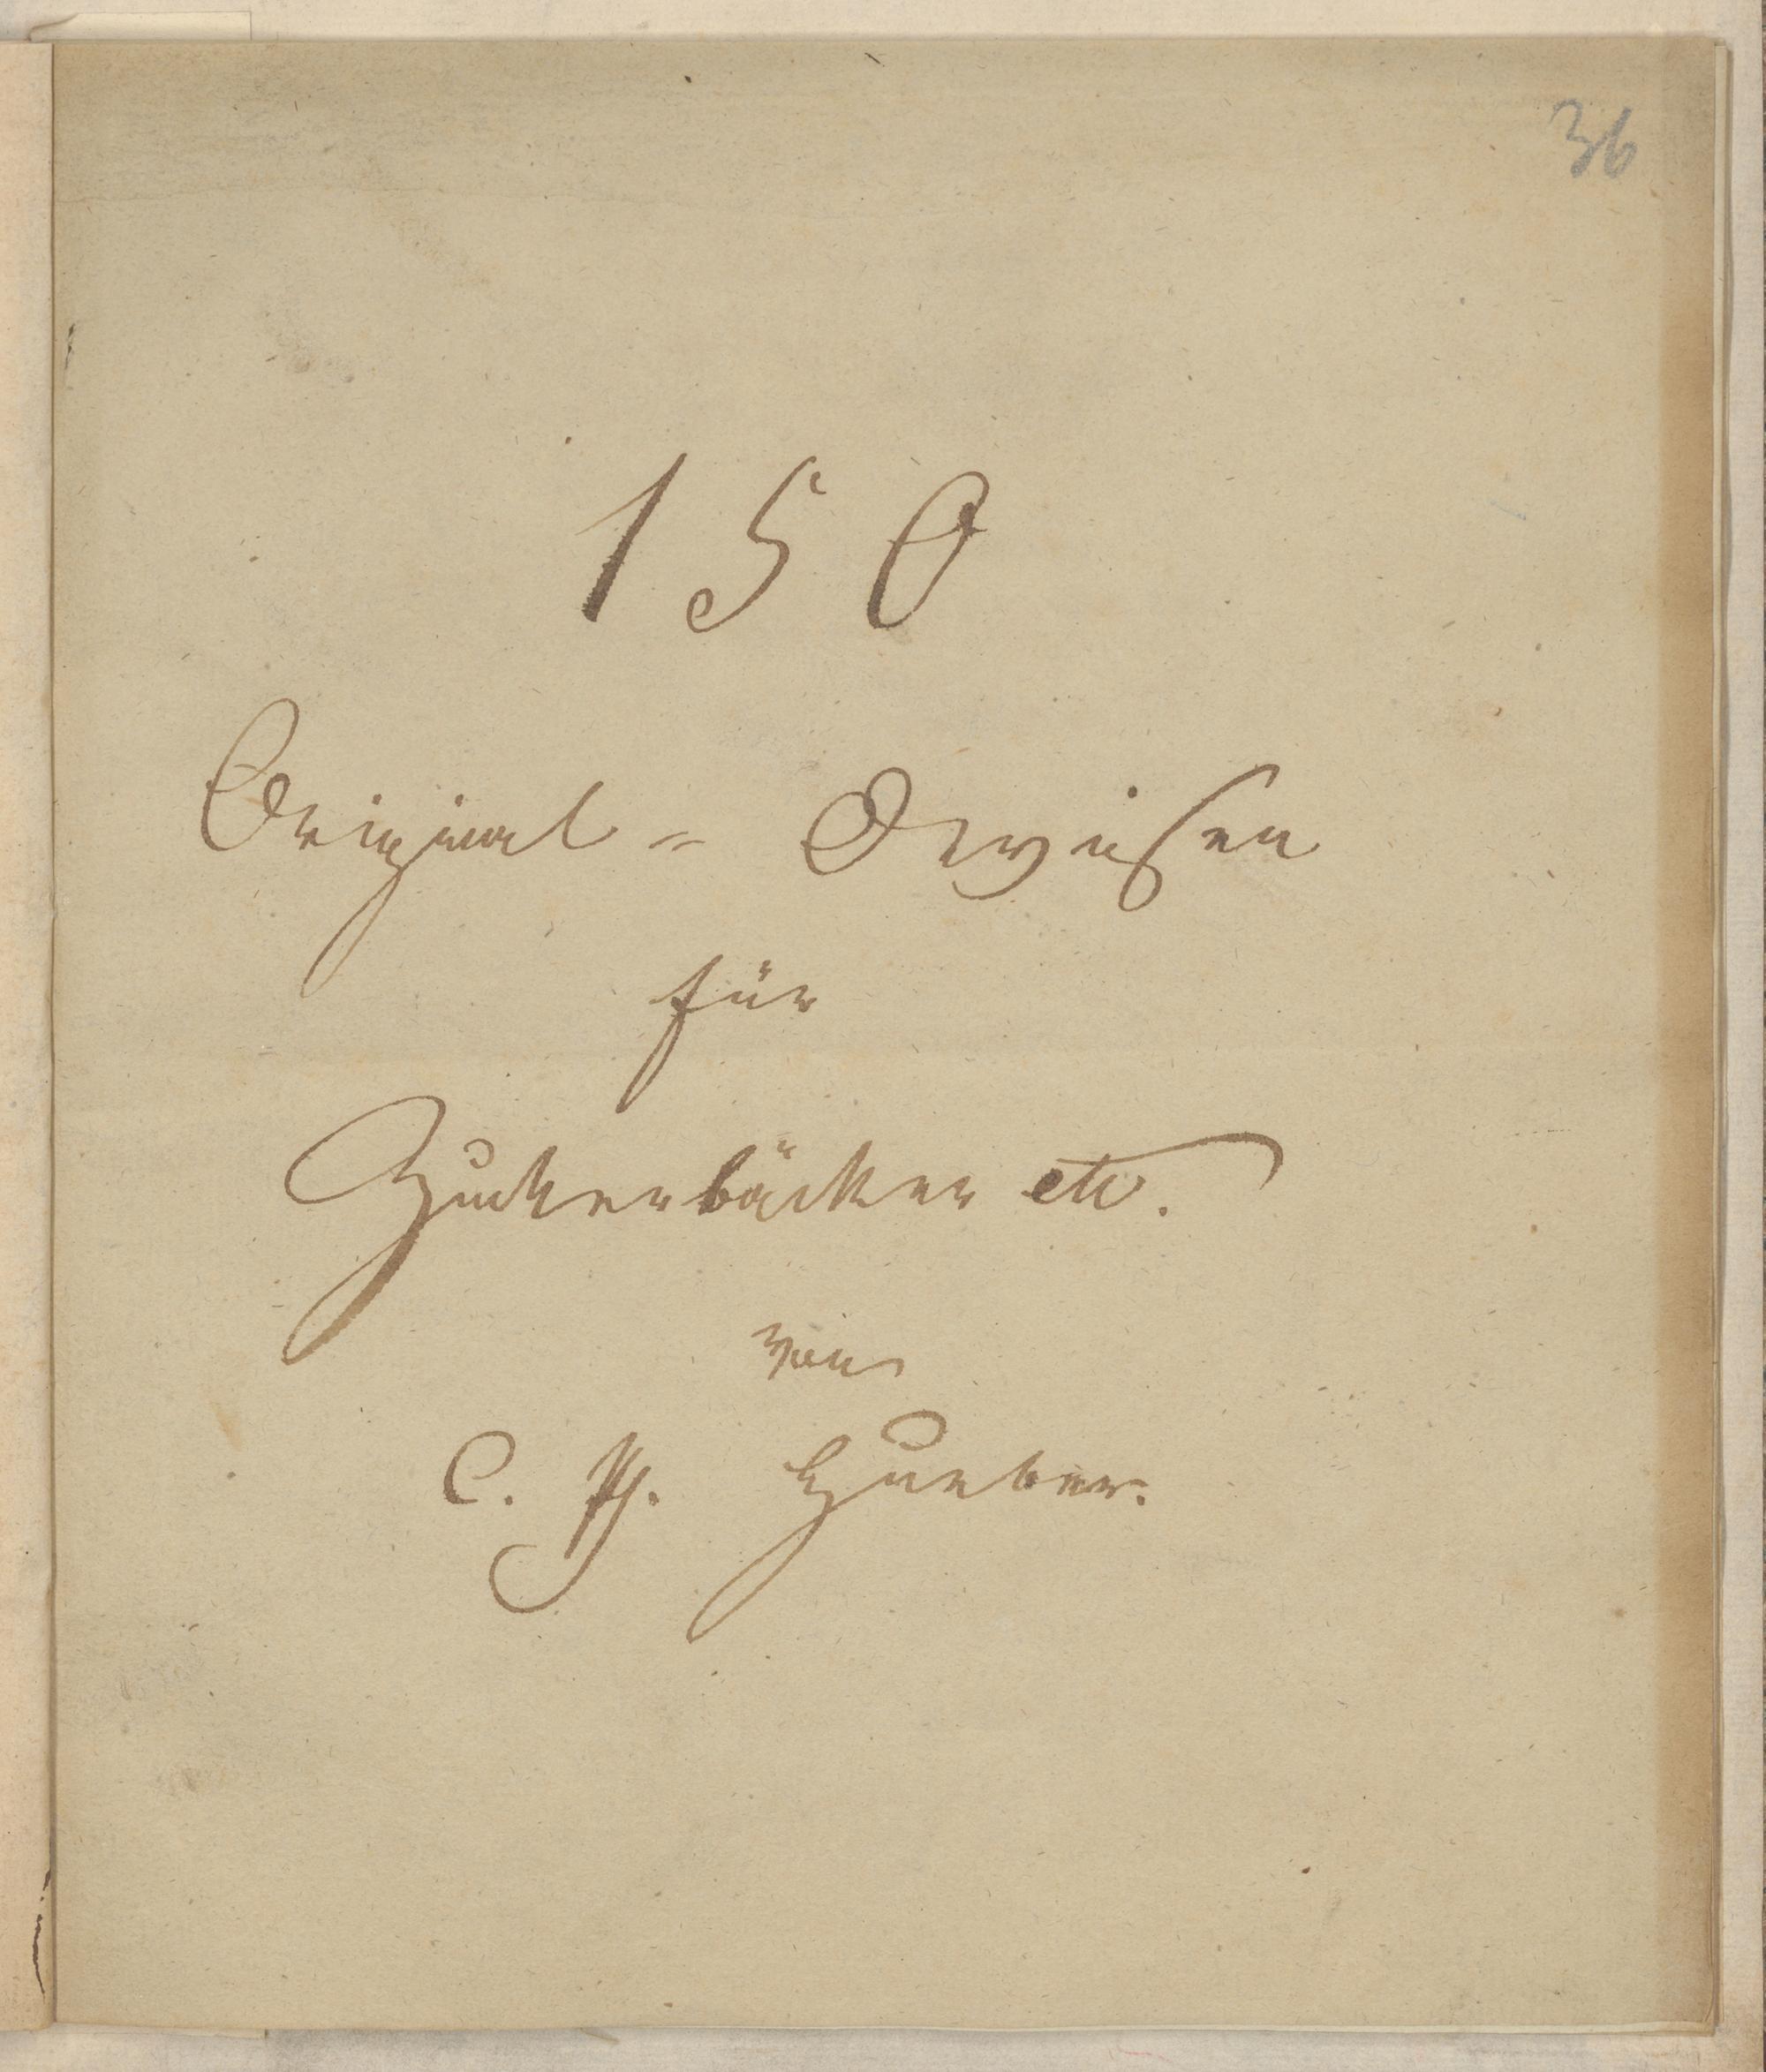 36
150
Original- Devisen
für
Zuckerbäcker etc.
von
C. Ph. Hueber.